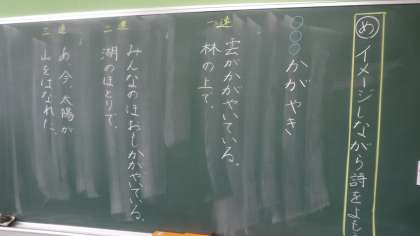 め イメージしながら詩をよもう
○○○ かがやき
一連
雲がかがやいている。
林の上で。
二連
みんなのほおもかがやいている。
湖のほとりで。
三連
あ、今、太陽が
山をはなれた。